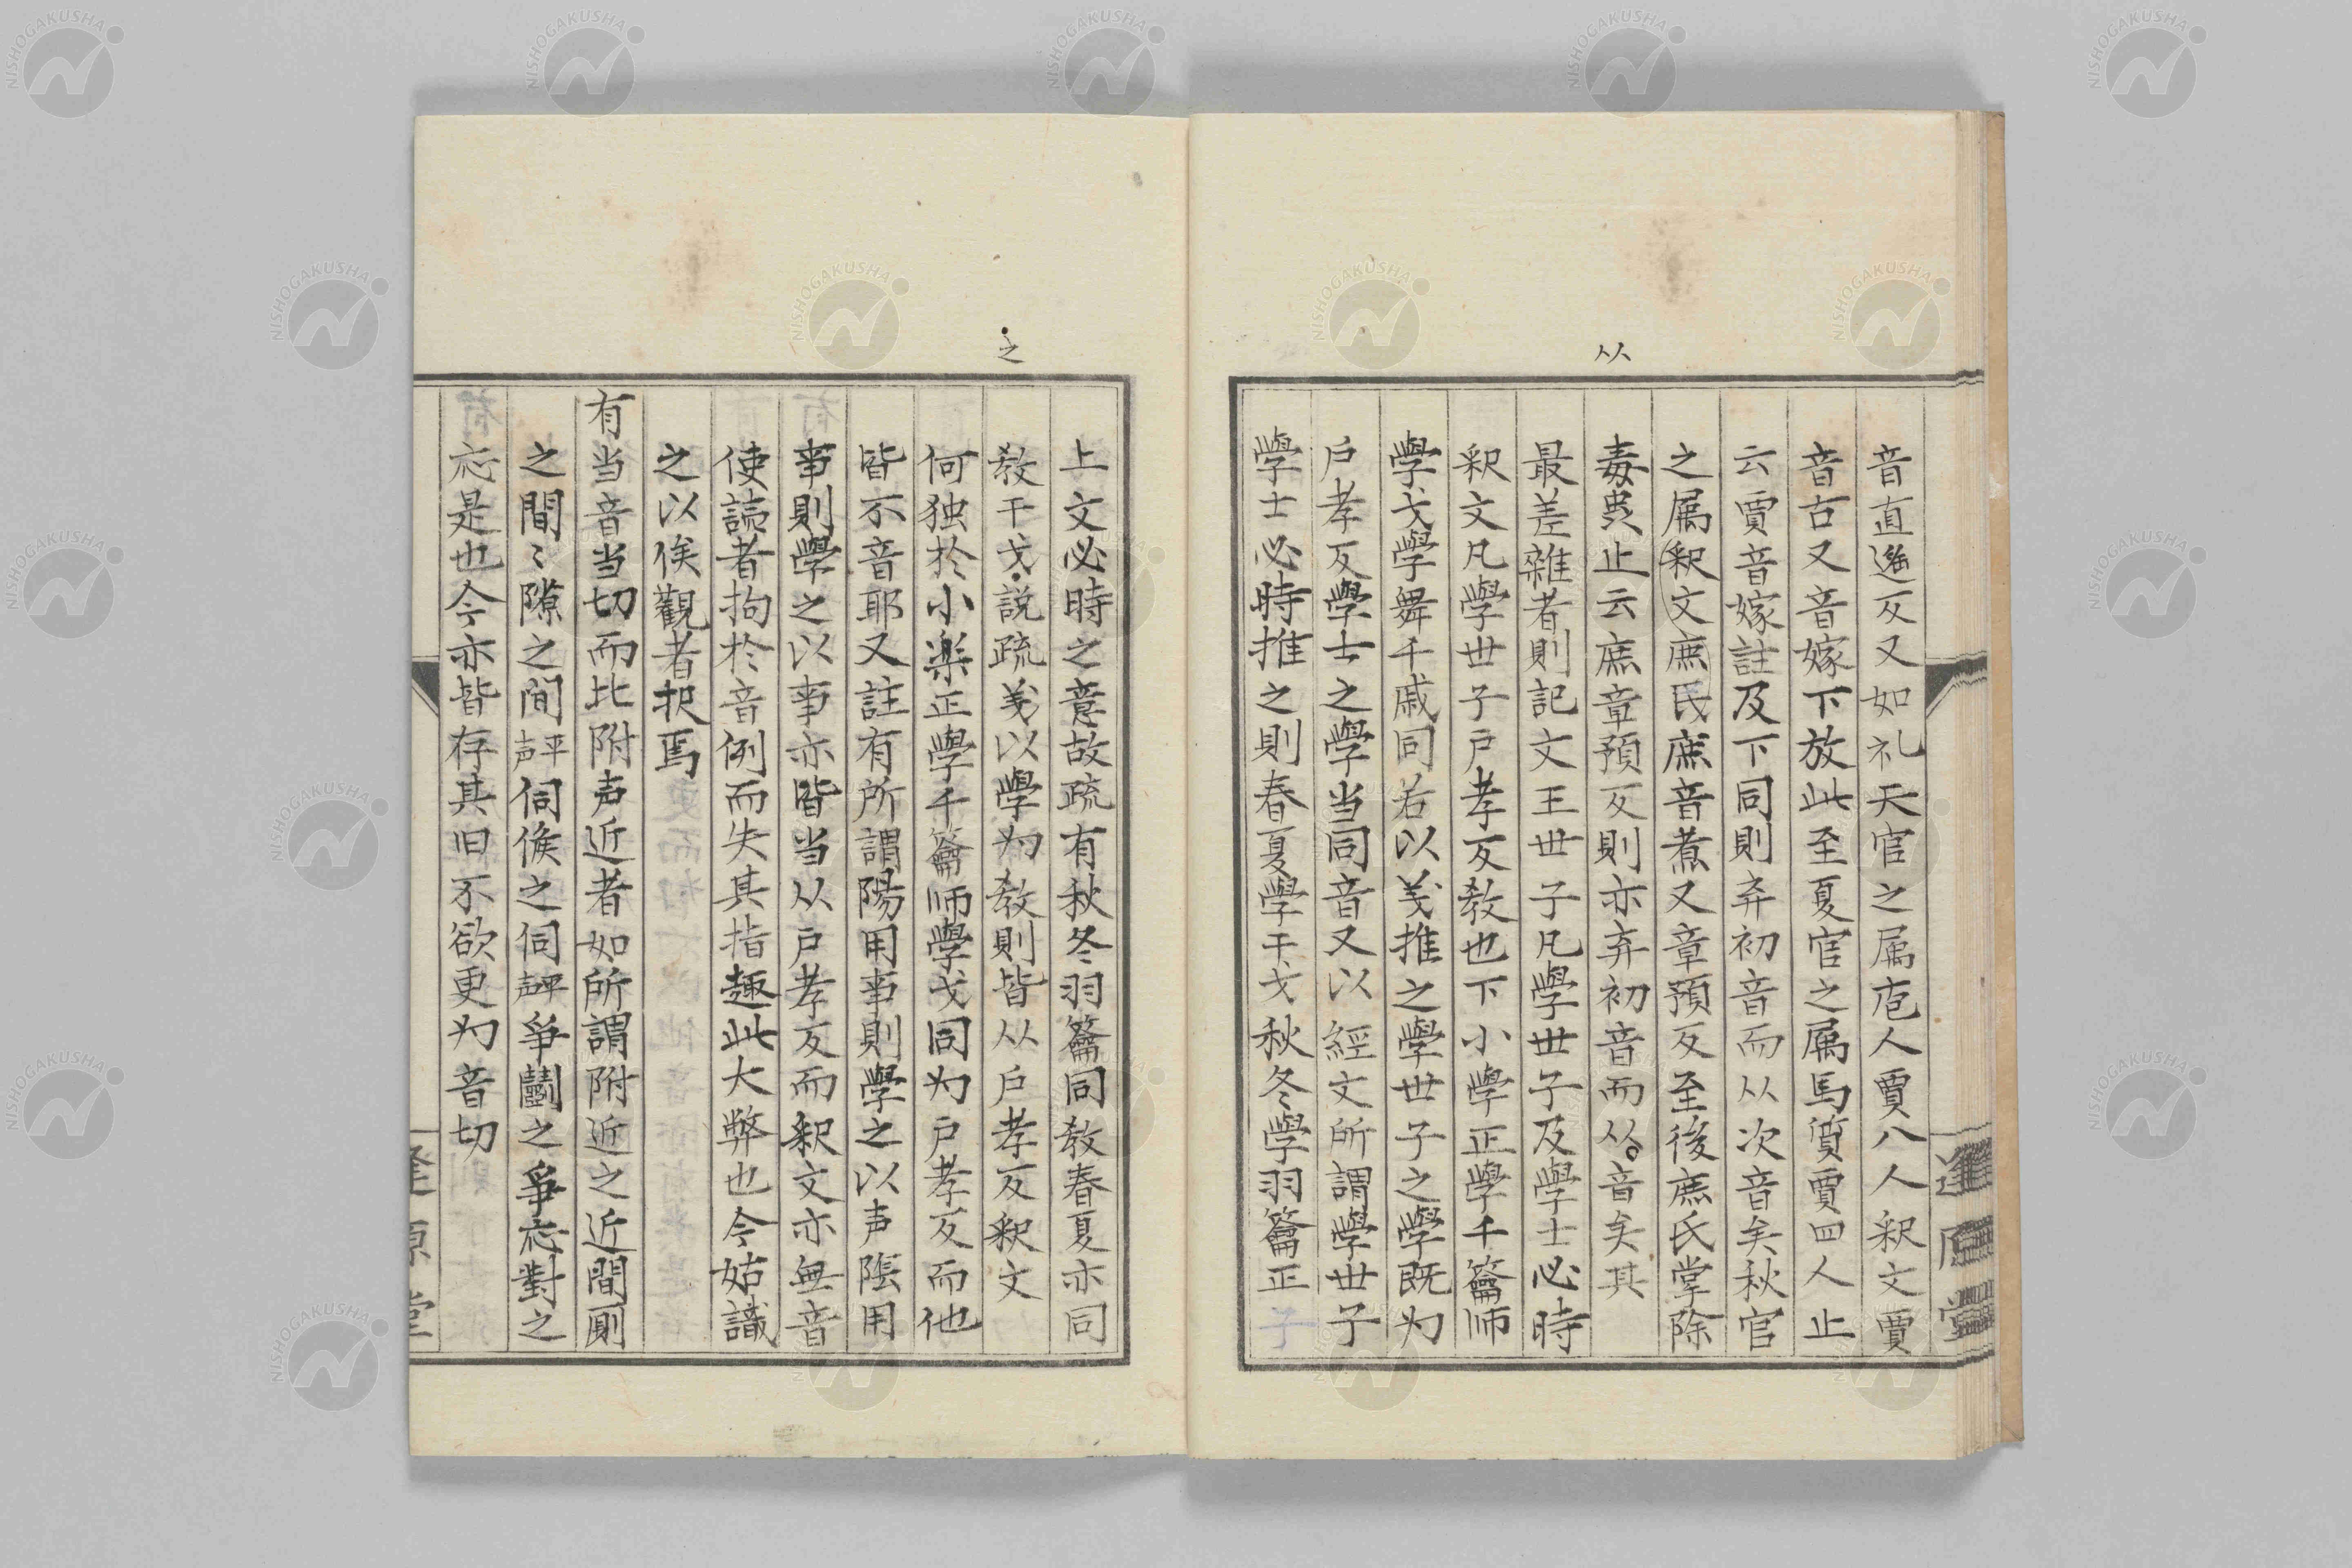 从
音直遥反又如礼天官之属庖人賈八人釈文賈
音古又音嫁下放此至夏官之属馬質賈四人止
云賈音嫁註及下同則弃初音而从次音矣秋官
之属釈文庶氏庶音煮又章預反至後庶氏掌除
毒蛊止云庶章預反則亦弃初音而从。音矣其
最差雑者則記文王世子凡學世子及學士必時
釈文凡學世子戸孝反教也下小學正學干籥師
學戈學舞干戚同若以義推之學世子之學既為
戸孝反學士之學当同音又以經文所謂學世子
學士必時推之則春夏學干戈秋冬學羽籥正
逢原堂
之
上文必時之意故疏有秋冬羽籥同教春夏亦同
教干戈説疏義以學為教則皆从戸孝反釈文
何独於小楽正學干籥師學戈同為戸孝反而他
皆不音耶又註有所謂陽用事則學之以声陰用
事則學之以事亦皆当从戸孝反而釈文亦無音
使読者拘於音例而失其指趣此大弊也今姑識
之以俟觀者択焉
有当音当切而比附声近者如所謂附近之近間厠
之間〻隙之间平声伺候之伺平声爭鬭之爭応對之
応是也今亦皆存其旧不欲更為音切
逢原堂
NISHOGAKUSHA